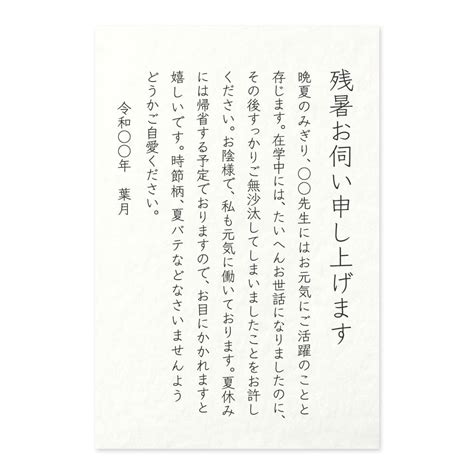 残暑お伺い申し上げます
晩夏のみぎり、〇〇先生にはお元気にご活躍のことと
存じます。在学中には、たいへんお世話になりましたのに、
その後すっかりご無沙汰してしまいましたことをお許し
ください。お陰様で、私も元気に働いております。夏休み
には帰省する予定でおりますので、お目にかかれますと
嬉しいです。時節柄、夏バテなどなさいませんよう
どうかご自愛ください。
令和〇〇年　葉月